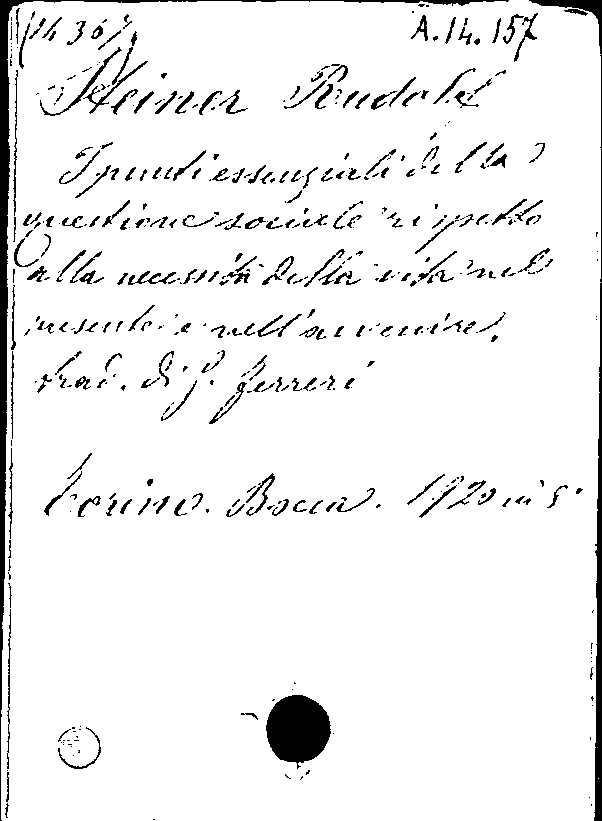 (14367) A.14.157
Steiner Rudolf
I punti essenziali della
questione sociale rispetto
alla necessità della vita nel
presente e nell'avvenire.
trad. di G. Ferreri
Torino. Bocca. 1920 in 8°